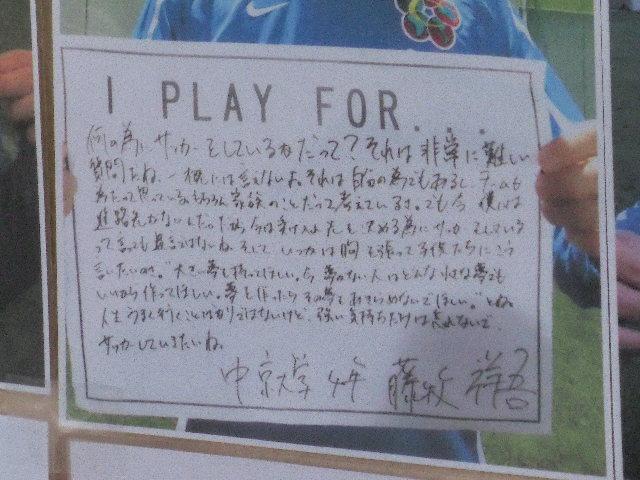 I PLAY FOR...
何の為にサッカーをしているかだって？それは非常に難しい
質問だね。一概には言えないよ。それは自分の為でもあるし、チームの
為だって思っているしもちろん家族のことだって考えているさ。でも今僕には
進路先がない
サッカーをしている
って言っても過言ではないね。そして、いつかは胸を張って子供たちにこう
言いたいのさ。"大きい夢を持ってほしい。今夢のない人はどんな小さな夢でも
いいから作ってほしい。夢を作ったらその夢をあきらめないでほしい。"とね。
人生うまく行くことばかりではないけど、強い気持ちだけは忘れないで、
サッカーしているたいね。
中京大学 4年 藤牧 祥吾